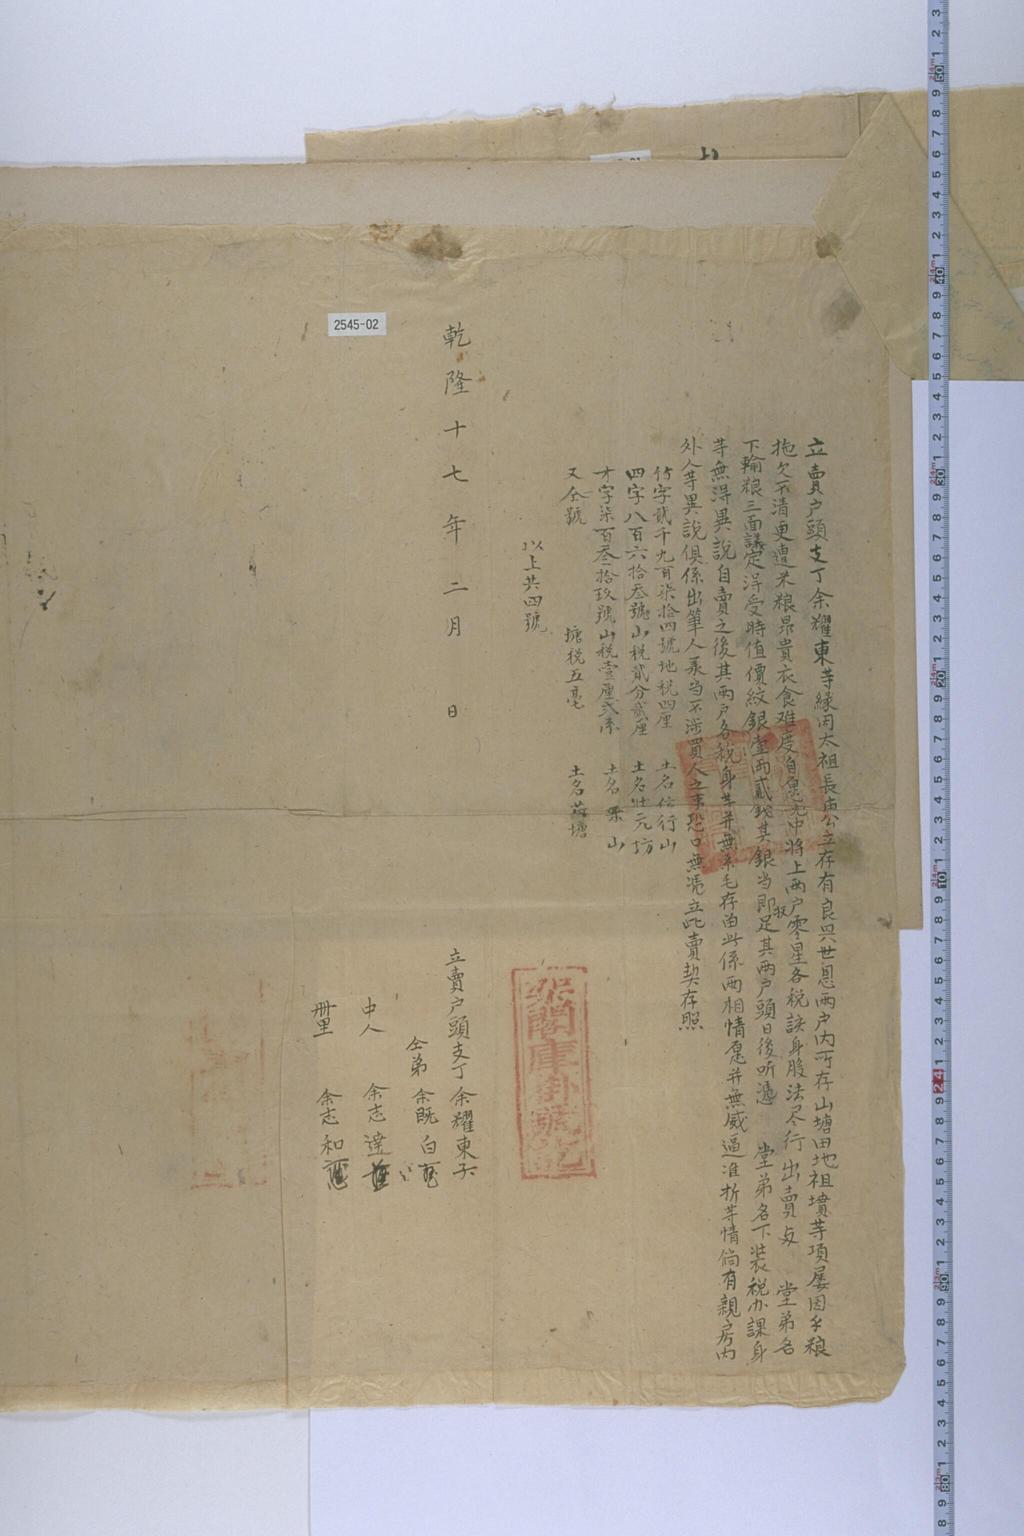 立賣户頭支丁余耀東等緣因太祖長惠公立存有良興世恩两户内所存山塘田地祖墳等項屡因乏粮
拖欠不清更遭米粮昂貴衣食难度自愿凂中將上两户零星各税該身股法尽行出賣与 堂弟名
下輸粮三面議定得受時值價紋銀壹两貳錢其銀当即收足其两户頭日後听憑 堂弟名下裝税办課身
等無得異說自賣之後其两户各税身等并無系毛存留此係两相情愿并無威逼准折等情倘有親房内
外人等異說俱係出筆人承当不涉買人之事恐口無憑立此賣契存照
竹字貳千九百柒拾四號地税四厘 土名竹行山
四字八百六拾叁號山税貳分貳厘 土名状元坊
才字柒百叁拾玖號山税壹厘弍系 土名 山
又仝號 塘税五毫 土名 塘
以上共四號
乾隆十七年二月 日
立賣户頭支丁余耀東
仝弟 余既白
中人 余志達
册里 余志和
架閣庫掛號訖
2545-02